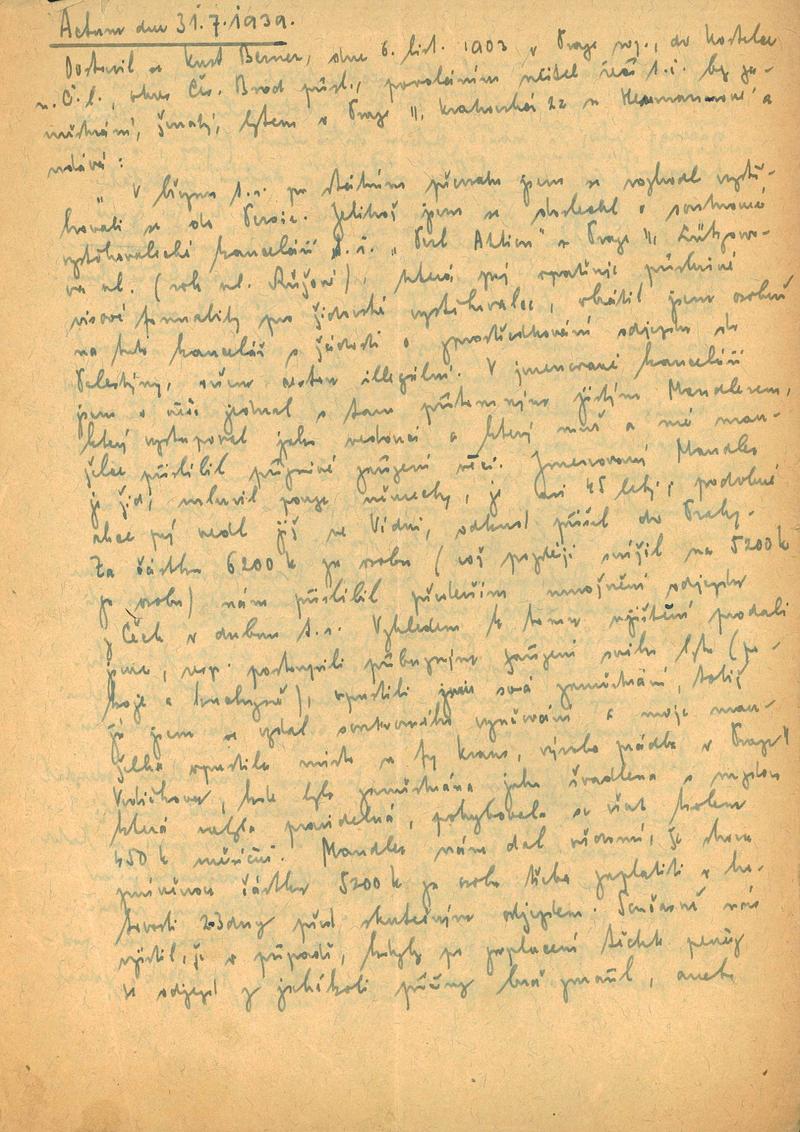 Actum dne 31.7.1939.
Dostavil se Kurt Berner, dne 6. list. 1903 v Praze nar., do Kostelce
n. Č. l., okres Čes. Brod přísl., povoláním učitel řečí t. č. bez za-
městnání, ženatý, bytem v Praze II, Krakovská 22 u Hermannové a
udává:
„V březnu t. r. po státním převratu jsem se rozhodl vystě-
hovati se do Persie. Jelikož jsem se doslechl o soukromé
vystěhovalecké kanceláři t. č. „Perl Aktion" v Praze II, Lützowo-
va ul. (roh ul. Růžové), která prý opatřuje příslušné
visové formality pro židovské vystěhovalce, obrátil jsem osobně
na tuto kancelář s žádostí o zprostředkování odjezdu do
Palestýny, ovšem cestou illegální. V jmenované kanceláři
jsem o věci jednal s tam přítomným jistým Mandlerem,
který vystupoval jako vedoucí a který mně a mé man-
želce přislíbil příznivé zařízení věci. Jmenovaný Mandler
je žid, mluvil pouze německy, je asi 45 letý, podobné
akce prý vedl již ve Vídni, odkud přišel do Prahy.
Za částku 6200 K za osobu (což později snížil na 5200 K
za osobu) nám přislíbil především umožnění odjezdu
z Čech v dubnu t. r. Vzhledem k tomu ujištění prodali
jsme, resp. postoupili příbuzným zařízení svého bytu (po-
koje a kuchyně), opustili jsme svá zaměstnání, totiž
já jsem se vzdal soukromého vyučování a moje man-
želka opustila místo u fy Kraus, výroba prádla v Praze II
Vodičkova, kde byla zaměstnána jako švadlena s mzdou
která nebyla pravidelná, pohybovala se však kolem
450 K měsíčně. Mandler nám dal vědomí, že shora
zmíněnou částku 5200 K za osobu třeba zaplatiti v ho-
tovosti 2-3 dny před skutečným odjezdem. Současně nás
ujistil, že v případě, kdyby po zaplacení těchto peněz
se odjezd z jakékoli příčiny buď zmařil, anebo